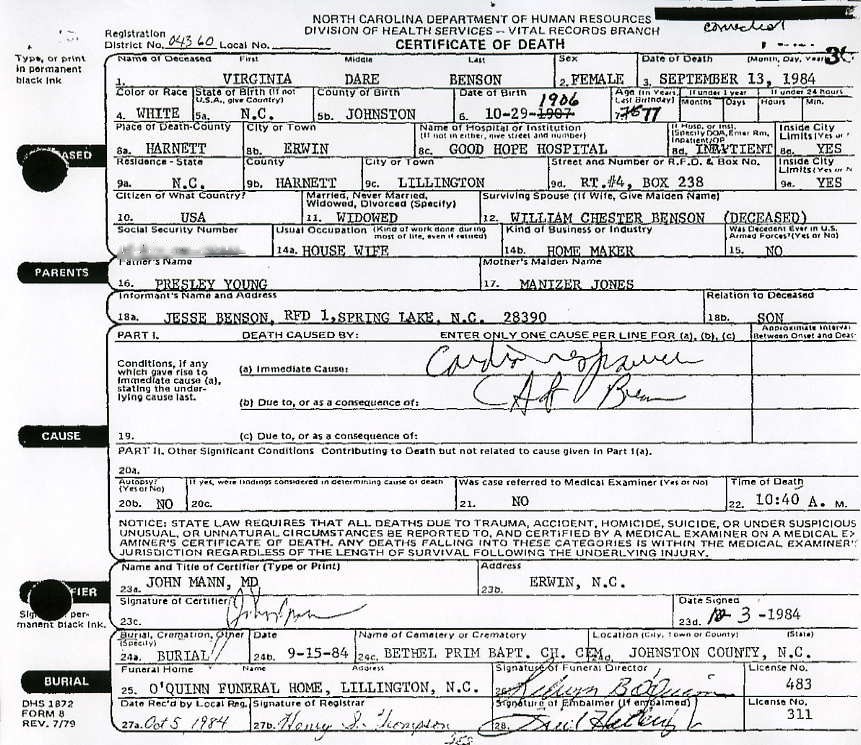 NORTH CAROLINA DEPARTMENT OF HUMAN RESOURCES
DIVISION OF HEALTH SERVICES – VITAL RECORDS BRANCH
CERTIFICATE OF DEATH
corrected
Registration
District No. 04360 Local No.
Type, or print
in permanent
black ink
Name of Deceased First Middle Last Sex Date of Death (Month, Day, Year)
1. VIRGINIA DARE BENSON 2. FEMALE 3. SEPTEMBER 13, 1984
Color or Race State of Birth (If not U.S.A., give Country) County of Birth Date of Birth Age (In Years, Last Birthday) If under 1 year If under 24 hours
Months Days Hours Min.
1906
4. WHITE 5a. N.C. 5b. JOHNSTON 6. 10-29-1907 7. 77
Place of Death-County City or Town Name of Hospital or Institution (If not in either, give street and number) If Hosp. or Inst. (Specify DOA, Emer Rm, Inpatient/OP Inside City Limits (Yes or
8a. HARNETT 8b. ERWIN 8c. GOOD HOPE HOSPITAL 8d. INPATIENT 8e. YES
Residence - State County City or Town Street and Number or R.F.D. & Box No. Inside City Limits (Yes or N
9a. N.C. 9b. HARNETT 9c. LILLINGTON 9d. RT.#4, BOX 238 9e. YES
Citizen of What Country? Married, Never Married, Widowed, Divorced (Specify) Surviving Spouse (If Wife, Give Maiden Name)
10. USA 11. WIDOWED 12. WILLIAM CHESTER BENSON (DECEASED)
Social Security Number Usual Occupation (Kind of work done during most of life, even if retired) Kind of Business or Industry Was Decedent Ever in U.S. Armed Forces? (Yes or No)
14a. HOUSE WIFE 14b. HOME MAKER 15. NO
PARENTS
Father's Name Mother's Maiden Name
16. PRESLEY YOUNG 17. MANIZER JONES
Informant's Name and Address Relation to Deceased
18a. JESSE BENSON, RFD 1, SPRING LAKE, N.C. 28390 18b. SON
PART I. DEATH CAUSED BY: ENTER ONLY ONE CAUSE PER LINE FOR (a), (b), (c) Approximate Interval Between Onset and Deat
Conditions, if any
which gave rise to
immediate cause (a),
stating the under-
lying cause last.
(a) Immediate Cause:
(b) Due to, or as a consequence of:
CAUSE
19. (c) Due to, or as a consequence of:
PART II. Other Significant Conditions Contributing to Death but not related to cause given in Part 1(a).
20a.
Autopsy? (Yes or No) If yes, were findings considered in determining cause of death Was case referred to Medical Examiner (Yes or No) Time of Death
20b. NO 20c. 21. NO 22. 10:40 A. M.
NOTICE: STATE LAW REQUIRES THAT ALL DEATHS DUE TO TRAUMA, ACCIDENT, HOMICIDE, SUICIDE, OR UNDER SUSPICIOUS
UNUSUAL, OR UNNATURAL CIRCUMSTANCES BE REPORTED TO, AND CERTIFIED BY A MEDICAL EXAMINER ON A MEDICAL EX
AMINER'S CERTIFICATE OF DEATH. ANY DEATHS FALLING INTO THESE CATEGORIES IS WITHIN THE MEDICAL EXAMINER'
JURISDICTION REGARDLESS OF THE LENGTH OF SURVIVAL FOLLOWING THE UNDERLYING INJURY.
Name and Title of Certifier (Type or Print) Address
23a. JOHN MANN, MD 23b. ERWIN, N.C.
Signature of Certifier Date Signed
23c. 23d. 3 -1984
manent black ink.
Burial, Cremation, Other (Specify) Date Name of Cemetery or Crematory Location (City, Town or County) (State)
24a. BURIAL 24b. 9-15-84 24c. BETHEL PRIM BAPT. CH. CEM 24d. JOHNSTON COUNTY, N.C.
BURIAL
Funeral Home Name Address Signature of Funeral Director License No.
25. O'QUINN FUNERAL HOME, LILLINGTON, N.C. 483
DHS 1872
FORM 8
REV. 7/79
Date Rec'd by Local Reg. Signature of Registrar Signature of Embalmer (If embalmed) License No.
27a. Oct 5, 1984 27b. Henry S. Thompson 28. 311